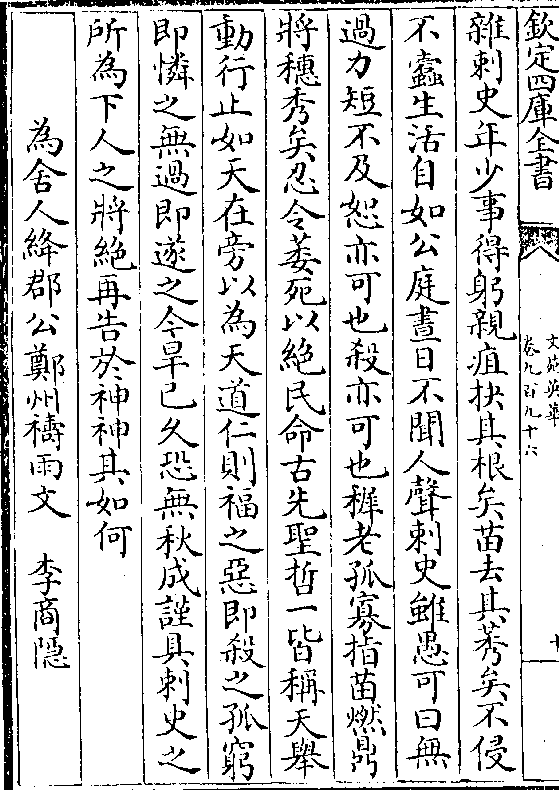 欽定四庫全書
文苑英華
卷九百九十六
雜刺史年少事得躬親疽抉其根矣苗去其莠矣不侵
不蠹生活自如公庭晝日不聞人聲刺史雖愚可曰無
過力短不及恕亦可也殺亦可也稚老孤寡指苗燃鼎
將穗秀矣忍令萎死以絶民命古先聖哲一皆稱天舉
動行止如天在旁以為天道仁則福之惡即殺之孤窮
即憐之無過即遂之今旱已久恐無秋成謹具刺史之
所為下人之將絶再告於神神其如何
為舍人絳郡公鄭州禱雨文 李商隱